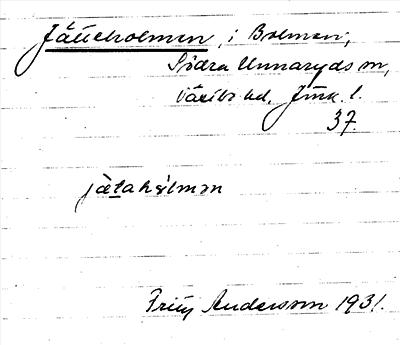 Jätteholmen, i Bolmen,
Södra Unnaryds sn,
Västbo hd, Jönk. l.
37.
jätahålmən
Fritz Andersson 1931.